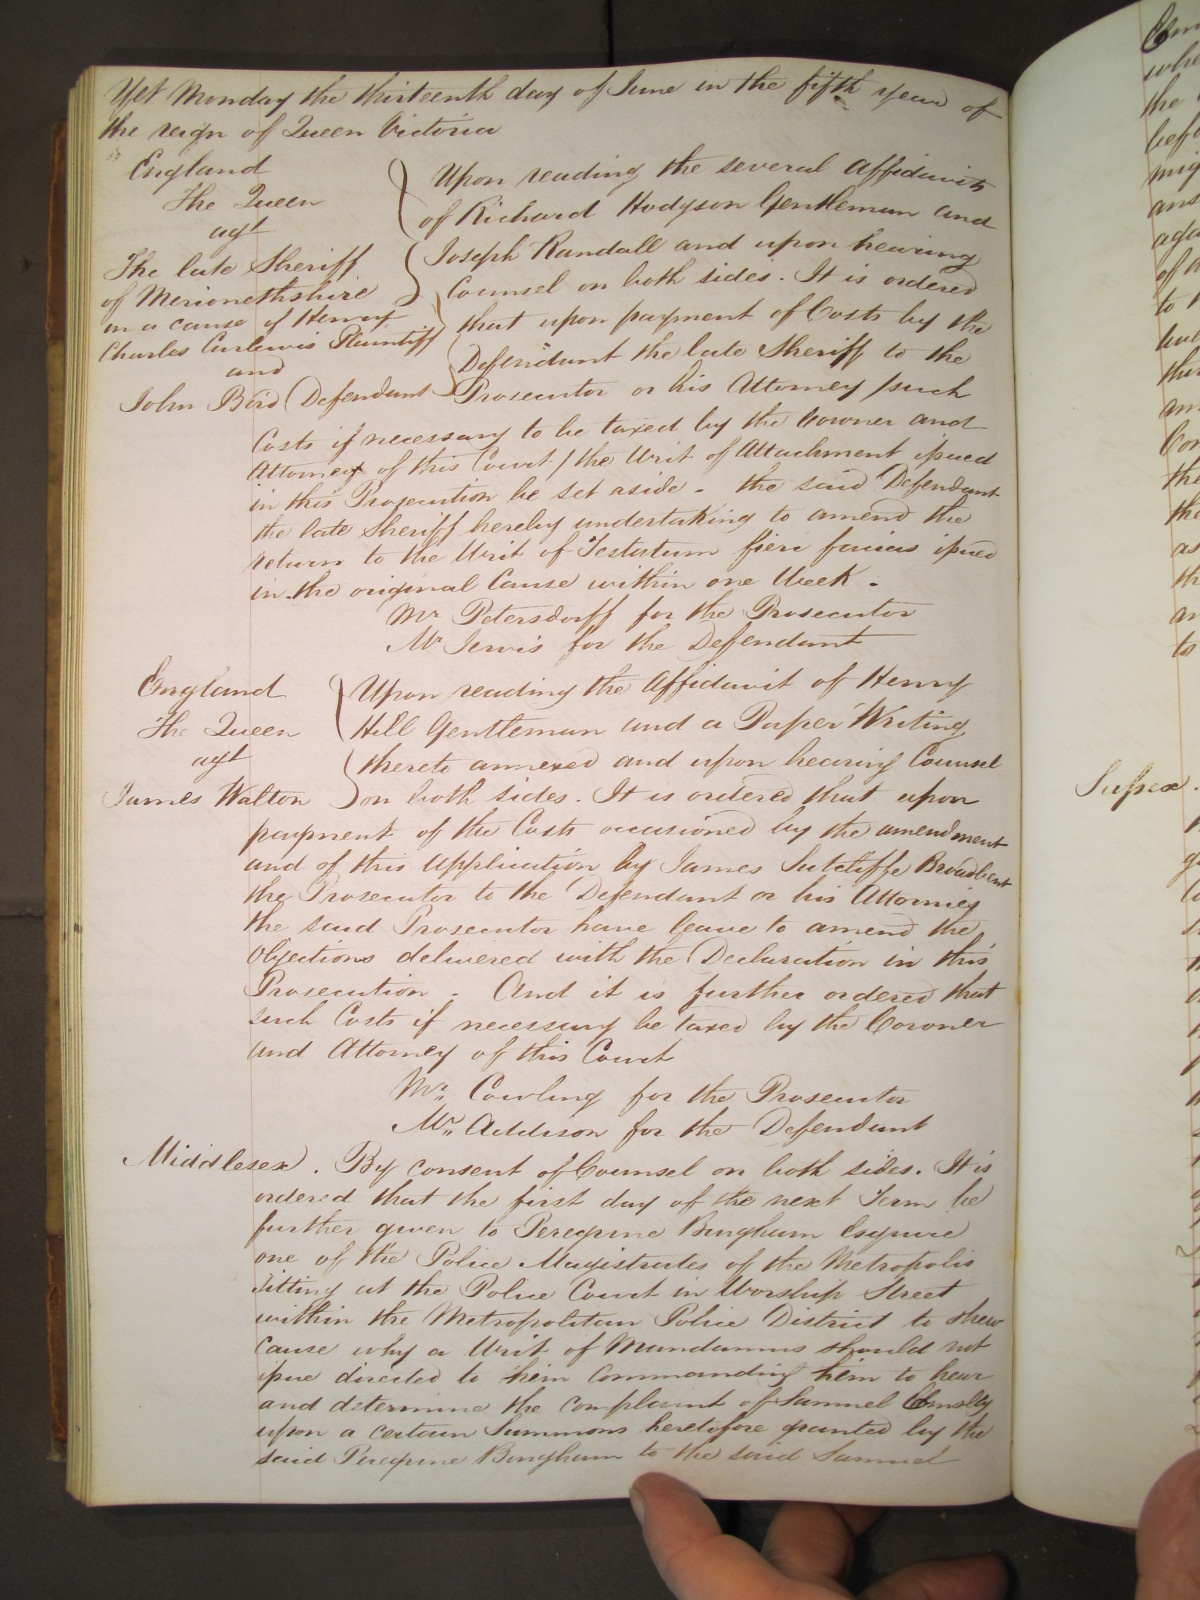 Yet Monday the thirteenth day of June in the fifth year of
the reign of Queen Victoria
England
The Queen
agt
The late Sheriff
of Merionethshire
in a cause of Henry
Charles Curlewis Plaintiff
and
John Bird Defendant
Upon reading the several Affidavits
of Richard Hodgson Gentleman and
Joseph Randall and upon hearing
Counsel on both sides. It is ordered
that upon payment of Costs by the
Defendant the late Sheriff to the
Prosecutor or his Attorney /such
Costs if necessary to be taxed by the Coroner and
Attorney of this Court/ the Writ of Attachment issued
in this Prosecution be set aside - the said Defendant
the late Sheriff hereby undertaking to amend the
return to the Writ of Testatum fieri facias issued
in the original Cause within one Week -
Mr Petersdorff for the Prosecutor
Mr Jervis for the Defendant
England
The Queen
agt
James Walton
Upon reading the Affidavit of Henry
Hill Gentleman and a Paper Writing
thereto annexed and upon hearing Counsel
on both sides. It is ordered that upon
payment of the Costs occasioned by the amendment
and of this Application by James Sutcliffe Broadbent
the Prosecutor to the Defendant or his Attorney
the said Prosecutor have leave to amend the
Objections delivered with the Declaration in this
Prosecution - And it is further ordered that
such Costs if necessary be taxed by the Coroner
and Attorney of this Court
Mr. Cowling for the Prosecutor
Mr. Addison for the Defendant
Middlesex. By consent of Counsel on both sides. It is
ordered that the first day of the next Term be
further given to Peregrine Bingham Esquire
one of the Police Magistrates of the Metropolis
sitting at the Police Court in Worship Street
within the Metropolitan Police District to shew
cause why a Writ of Mandamus should not
issue directed to him Commanding him to hear
and determine the complaint of Samuel
upon a certain Summons heretofore granted by the
said Peregrine Bingham to the said Samuel
Sussex.